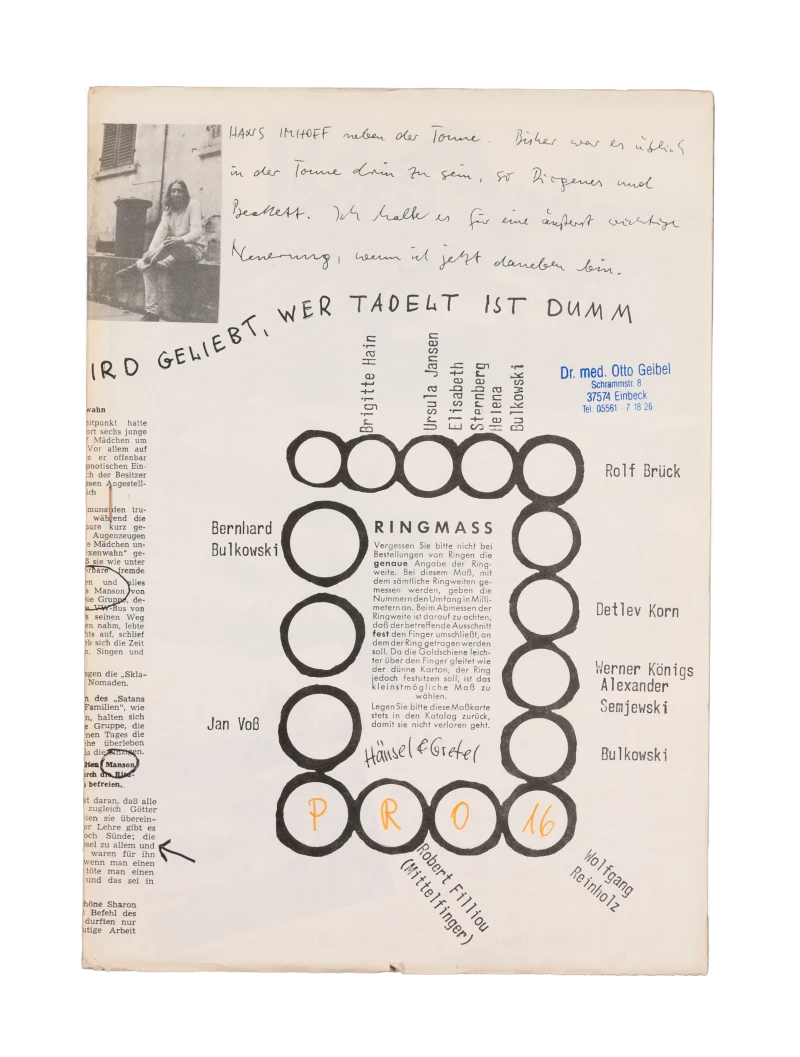 HANS IMHOFF neben der Tonne. Bisher war es üblich
in der Tonne drin zu sein, so Diogenes und
Beckett. Ich halte es für eine äußerst wichtige
Neuerung, wenn ich jetzt daneben bin.
IRD GELIEBT, WER TADELT IST DUMM
Brigitte Hain
Ursula Jansen
Elisabeth
Sternberg
Helena
Bulkowski
Dr. med. Otto Geibel
Schrammstr. 8
37574 Einbeck
Tel. 05561 - 7 18 26
Rolf Brück
Bernhard
Bulkowski
RINGMASS
Vergessen Sie bitte nicht bei
Bestellungen von Ringen die
genaue Angabe der Ring-
weite. Bei diesem Maß, mit
dem sämtliche Ringweiten ge-
messen werden, geben die
Nummern den Umfang in Milli-
metern an. Beim Abmessen der
Ringweite ist darauf zu achten,
daß der betreffende Ausschnitt
fest den Finger umschließt, an
dem der Ring getragen werden
soll. Da die Goldschiene leich-
ter über den Finger gleitet wie
der dünne Karton, der Ring
jedoch festsitzen soll, ist das
kleinstmögliche Maß zu
wählen.
Legen Sie bitte diese Maßkarte
stets in den Katalog zurück,
damit sie nicht verloren geht.
Hänsel & Gretel
Detlev Korn
Werner Königs
Alexander
Semjewski
Jan Voß
Bulkowski
P R O 16
Robert Filliou
(Mittelfinger)
Wolfgang
Reinholz
wahn
eitpunkt hatte
ert sechs junge
Mädchen um
Vor allem auf
e er offenbar
pnotischen Ein-
ch der Besitzer
ssen Angestell-
ich
munarden tru-
während die
bare kurz ge-
Augenzeugen
e Mädchen un-
exenwahn" ge-
ß sie wie unter
rbare fremde
en und alles
s Manson von
ie Gruppe, de-
VW-Bus von
s seinen Weg
en nahm, lebte
hts auf, schlief
ob sich die Zeit
n, Singen und
gen die „Skla-
Nomaden.
n des „Satans
Familien", wie
n, halten sich
e Gruppe, die
nen Tages die
he überleben
ls die einzigen.
Manson
befreien.
st daran, daß alle
zugleich Götter
ten sie überein-
er Lehre gibt es
och Sünde; die
sel zu allem und
waren für ihn
wenn man einen
töte man einen
und das sei in
höne Sharon
Befehl des
durften nur
utige Arbeit